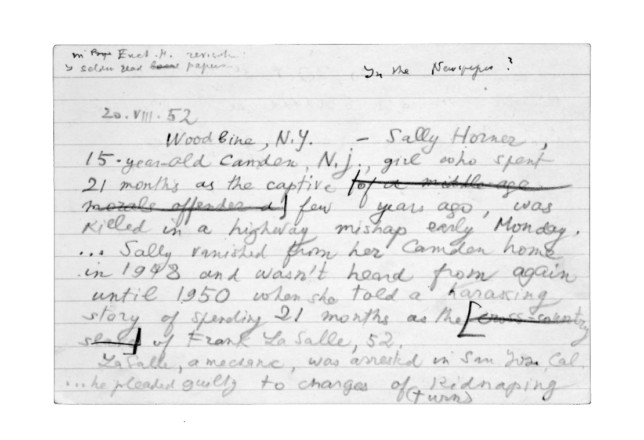 in
Enct. H.
> seldom read papers
In the Newspaper?
20. VIII. 52
Woodbine, N.Y. – Sally Horner,
15-year-old Camden, N.J., girl who spent
21 months as the captive [of a middle-age
morals offender a] few years ago, was
killed in a highway mishap early Monday.
... Sally vanished from her Camden home
in 1948 and wasn't heard from again
until 1950 when she told a harassing
story of spending 21 months as the [cross-country
slave] of Frank La Salle, 52.
LaSalle, a mechanic, was arrested in San Jose, Cal.
...he pleaded guilty to charges of kidnaping
(turn)